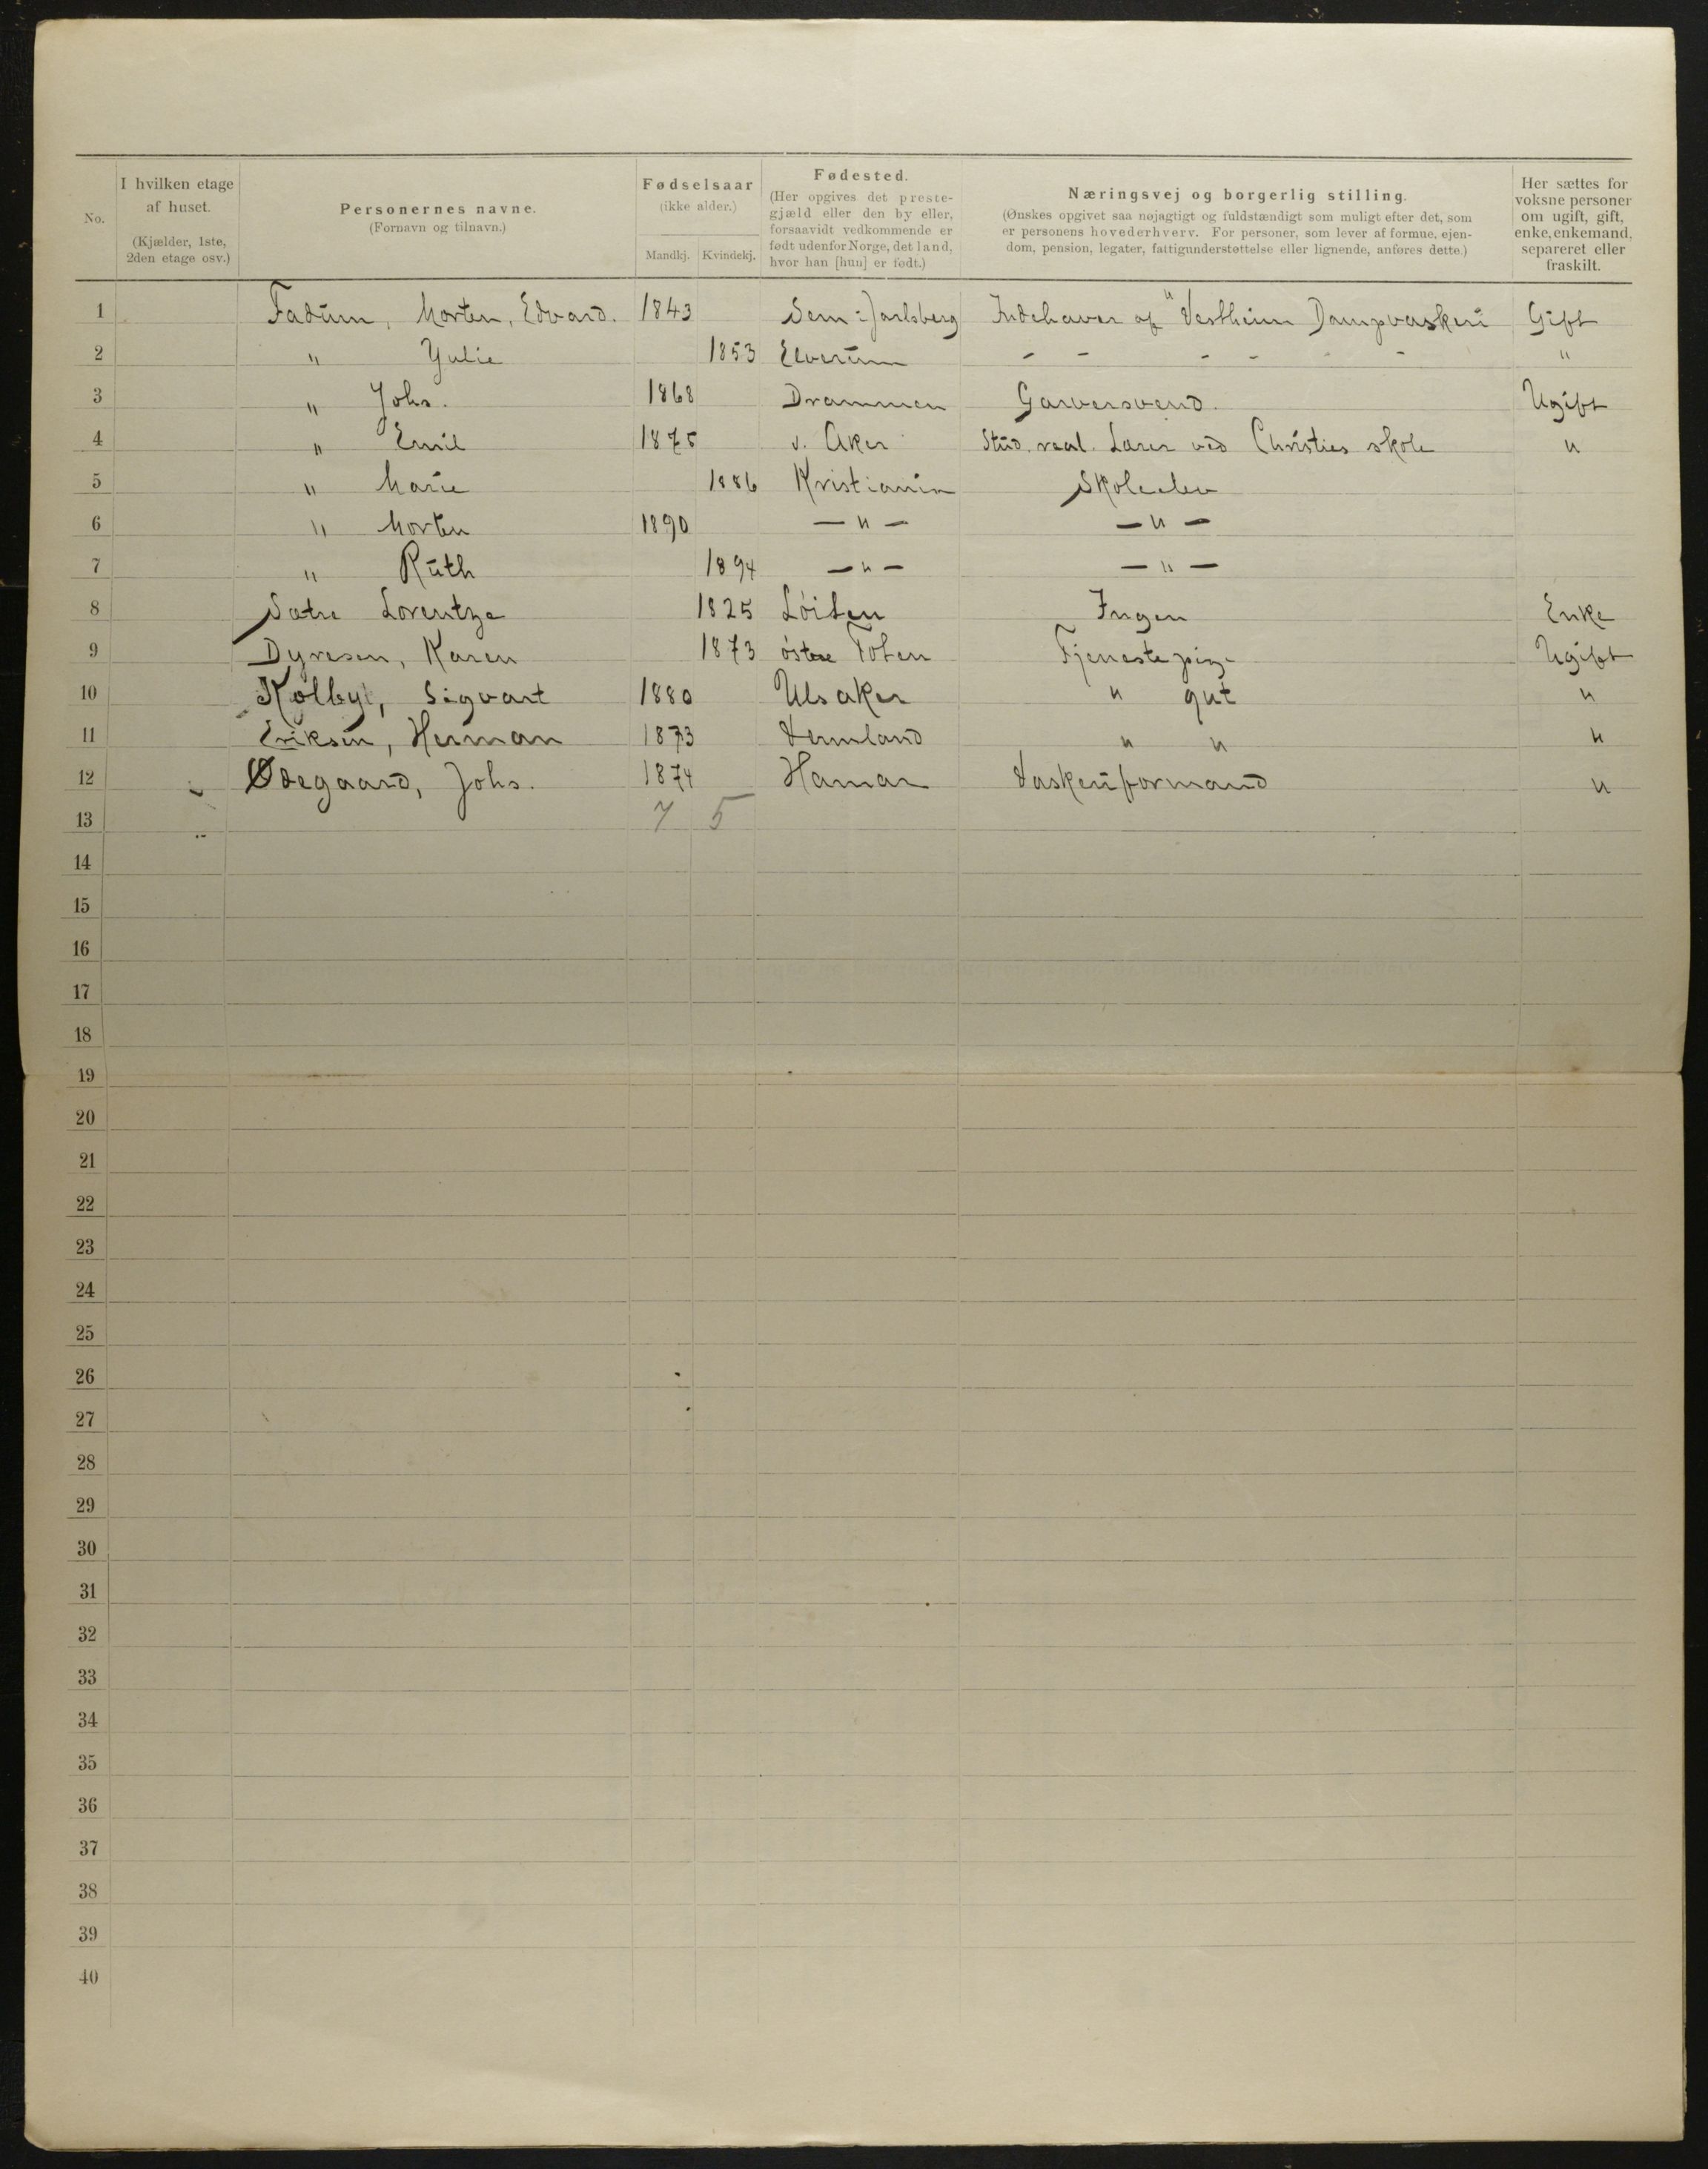 No. I hvilken etage af huset. (Kjælder, 1ste, 2den etage osv.) Personernes navne. (Fornavn og tilnavn.) Fødselsaar (ikke alder.) Mandkj. Kvindekj. Fødested. (Her opgives det prestegjæld eller den by eller, forsaavidt vedkommende er født udenfor Norge, det land, hvor han [hun] er født.) Næringsvej og borgerlig stilling. (Ønskes opgivet saa nøjagtigt og fuldstændigt som muligt efter det, som er personens hovederhverv. For personer, som lever af formue, ejendom, pension, legater, fattigunderstøttelse eller lignende, anføres dette.) Her sættes for voksne personer om ugift, gift, enke, enkemand, separeret eller fraskilt.
1 Fadum, Morten, Edvard. 1843 Sem : Jarlsberg Indehaver af "Vestheim Dampvaskeri Gift
2 " Yulie 1853 Elverum - - - - - - "
3 " Johs. 1868 Drammen Garversvend. Ugift
4 " Emil 1875 v. Aker Stud. real. Lærer ved Christies skole "
5 " Marie 1886 Kristiania Skoleelev
6 " Morten 1890 — " — — " —
7 " Ruth 1894 — " — — " —
8 Sætre Lorentze 1825 Löiten Ingen Enke
9 Dyresen, Karen 1873 östre Toten Tjenestepige Ugift
10 Kolby, Sigvart 1880 Ulsaker " gut "
11 Eriksen, Herman 1873 Vermland " " "
12 Ødegaard, Johs. 1874 Hamar Vaskeriformand "
13 7 5
14
15
16
17
18
19
20
21
22
23
24
25
26
27
28
29
30
31
32
33
34
35
36
37
38
39
40